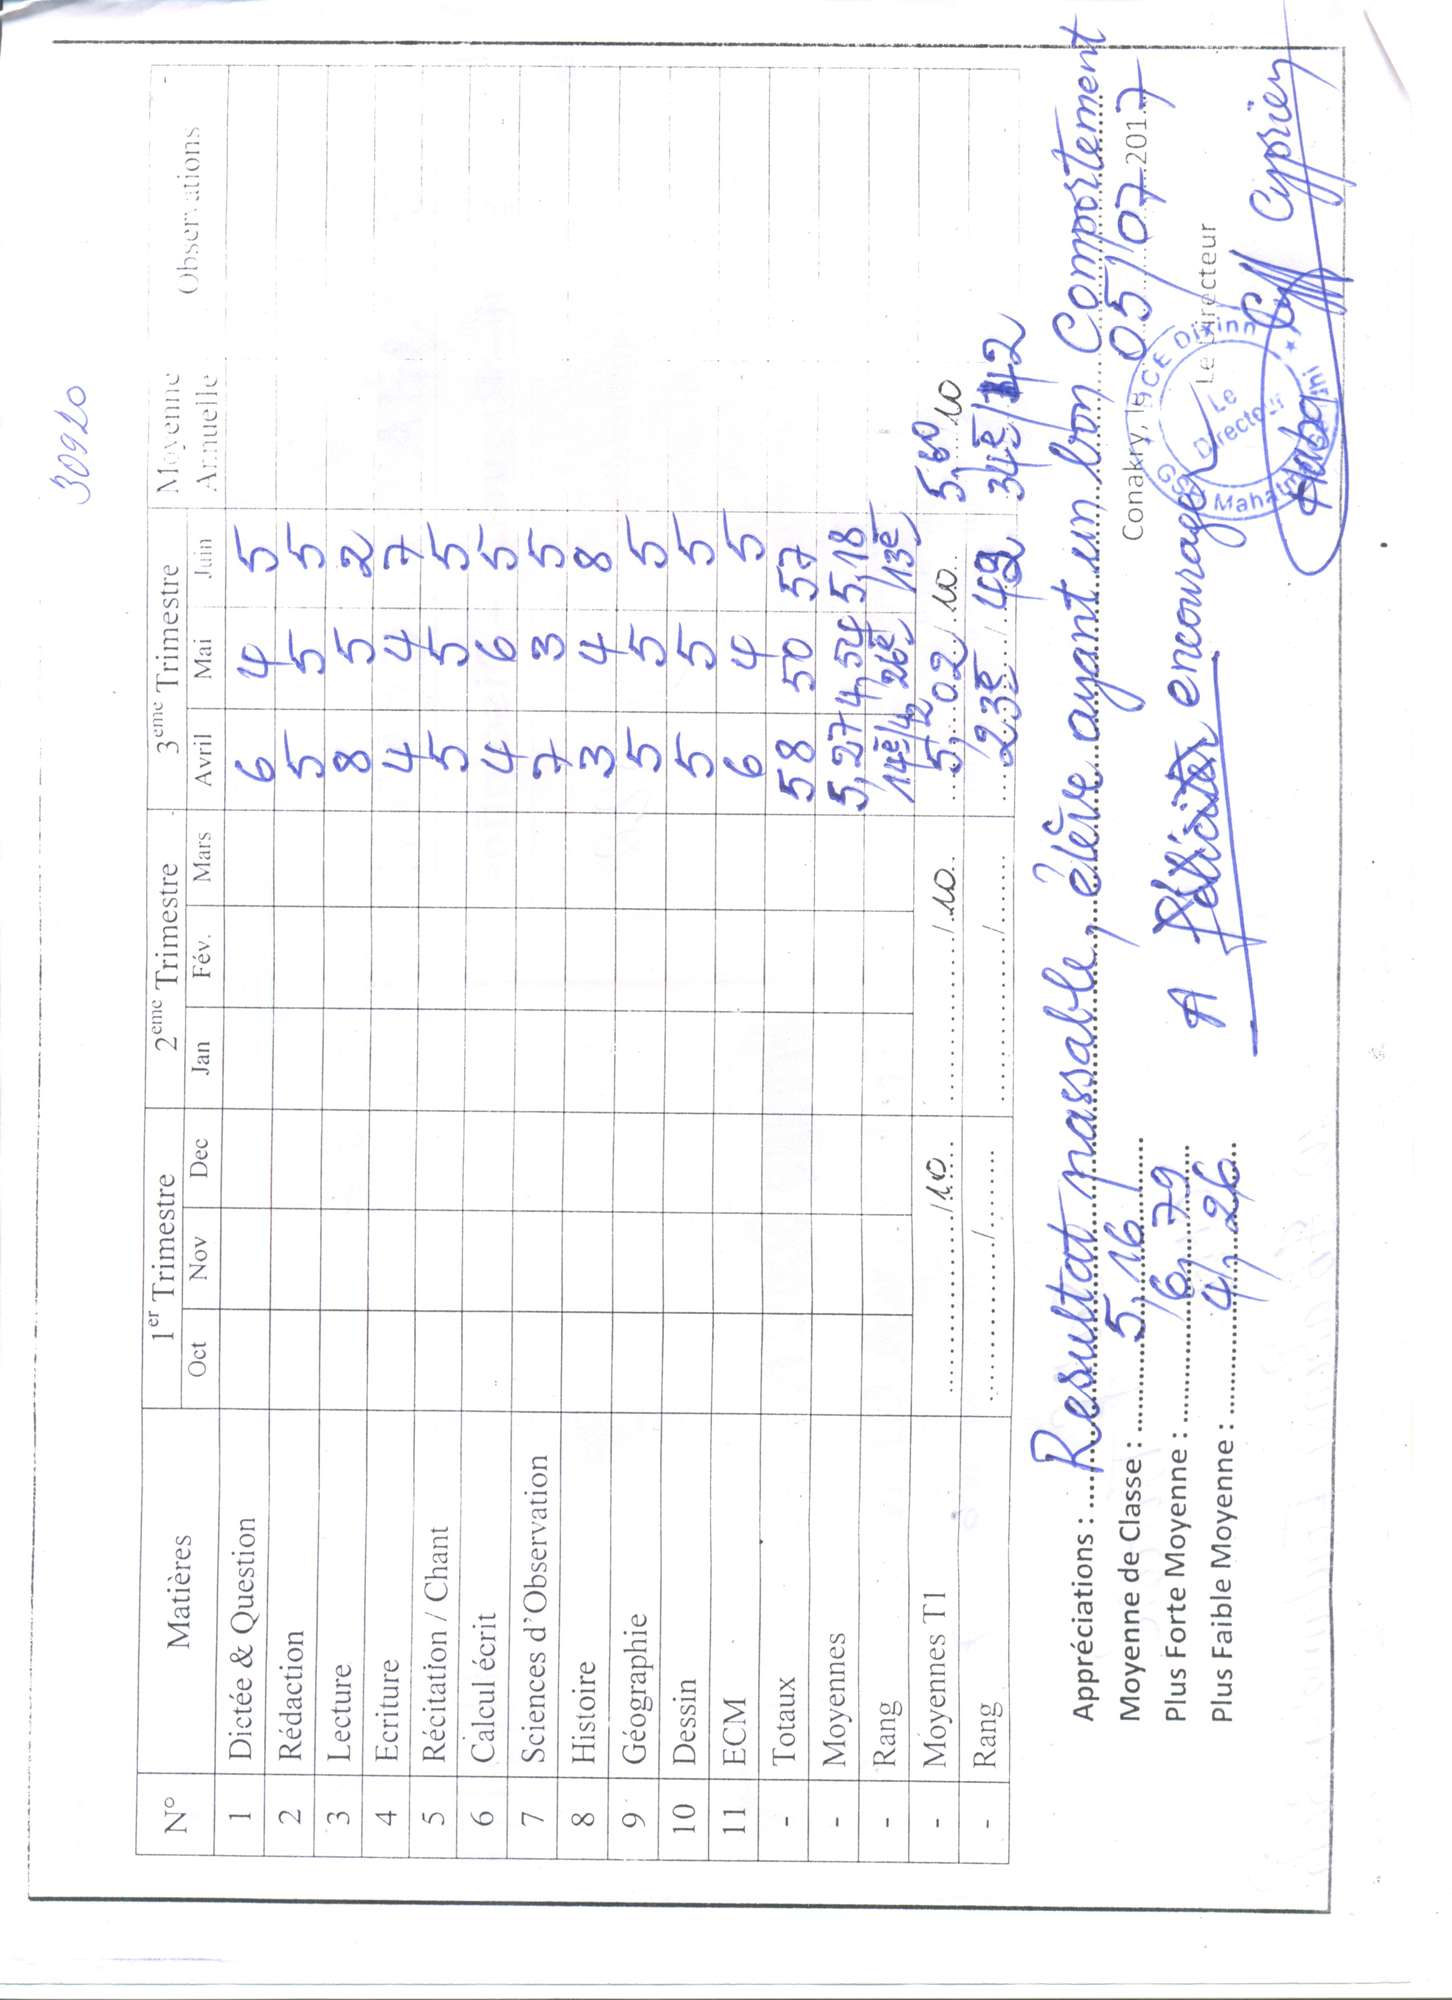 30920
N° Matières 1er Trimestre 2eme Trimestre 3eme Trimestre Moyenne Annuelle Observations
Oct Nov Dec Jan Fév. Mars Avril Mai Juin
1 Dictée & Question 6 4 5
2 Rédaction 5 5 5
3 Lecture 8 5 2
4 Ecriture 4 4 7
5 Récitation / Chant 5 5 5
6 Calcul écrit 4 6 5
7 Sciences d'Observation 7 3 5
8 Histoire 3 4 8
9 Géographie 5 5 5
10 Dessin 5 5 5
11 ECM 6 4 5
- Totaux 58 50 57
- Moyennes 5,27 4,54 5,18
- Rang 14e/42 26e 13e
- Moyennes T1 /10 /10 5,02/10 5,60 10
- Rang / / 23e / 42 34e/42
Appréciations : Resultat passable, élève ayant un bon Comportement
Moyenne de Classe : 5,16
Conakry, le 05/07 2017
Plus Forte Moyenne : 6,79
A encourager
Le Directeur
Plus Faible Moyenne : 4,26
DCE Dixinn
Le Directeur
GS Mahatma
Cyprien